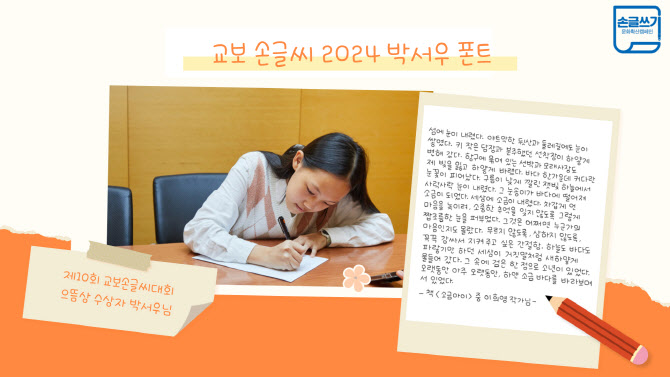 손글쓰기
문화확산캠페인
교보 손글씨 2024 박서우 폰트
섬에 눈이 내렸다. 야트막한 뒷산과 둘레길에도 눈이
쌓였다. 키 작은 담장과 분주했던 선착장이 하얗게
변해 갔다. 항구에 묶여 있는 선박과 모래사장도
제 빛을 잃고 하얗게 바랬다. 바다 한가운데 커다란
눈꽃이 피어났다. 구름이 낮게 깔린 잿빛 하늘에서
사락사락 눈이 내렸다. 그 눈송이가 바다에 떨어져
소금이 되었다. 세상에 소금이 내렸다. 차갑게 언
마음을 녹이려, 소중한 추억을 잊지 않도록 그렇게
짭조름한 눈을 퍼부었다. 그것은 어쩌면 누군가의
마음인지도 몰랐다. 무르지 않도록, 상하지 않도록,
꼭꼭 감싸서 지켜주고 싶은 간절함. 하늘도 바다도
파랗기만 하던 세상이 거짓말처럼 새하얗게
물들어 갔다. 그 속에 검은 한 점으로 소년이 있었다.
오랫동안 아주 오랫동안, 하얀 소금 바다를 바라보며
서 있었다.
- 책 <소금아이> 중 이희영 작가님 -
제10회 교보손글씨대회
으뜸상 수상자 박서우님